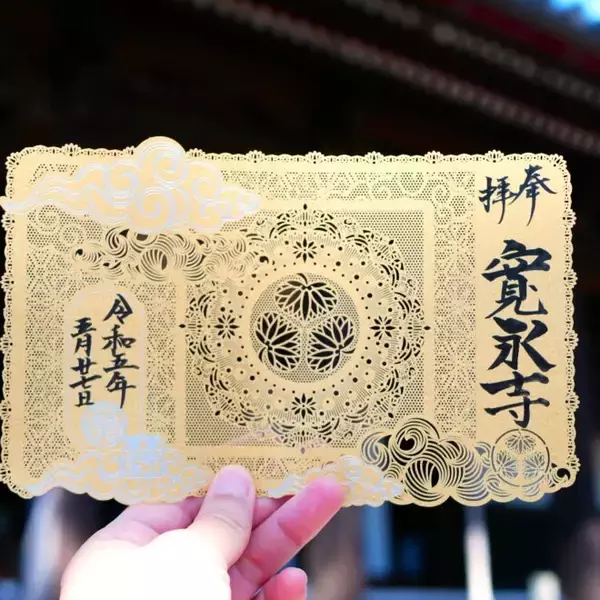 奉拝
寛永寺
令和五年
五月廿七日